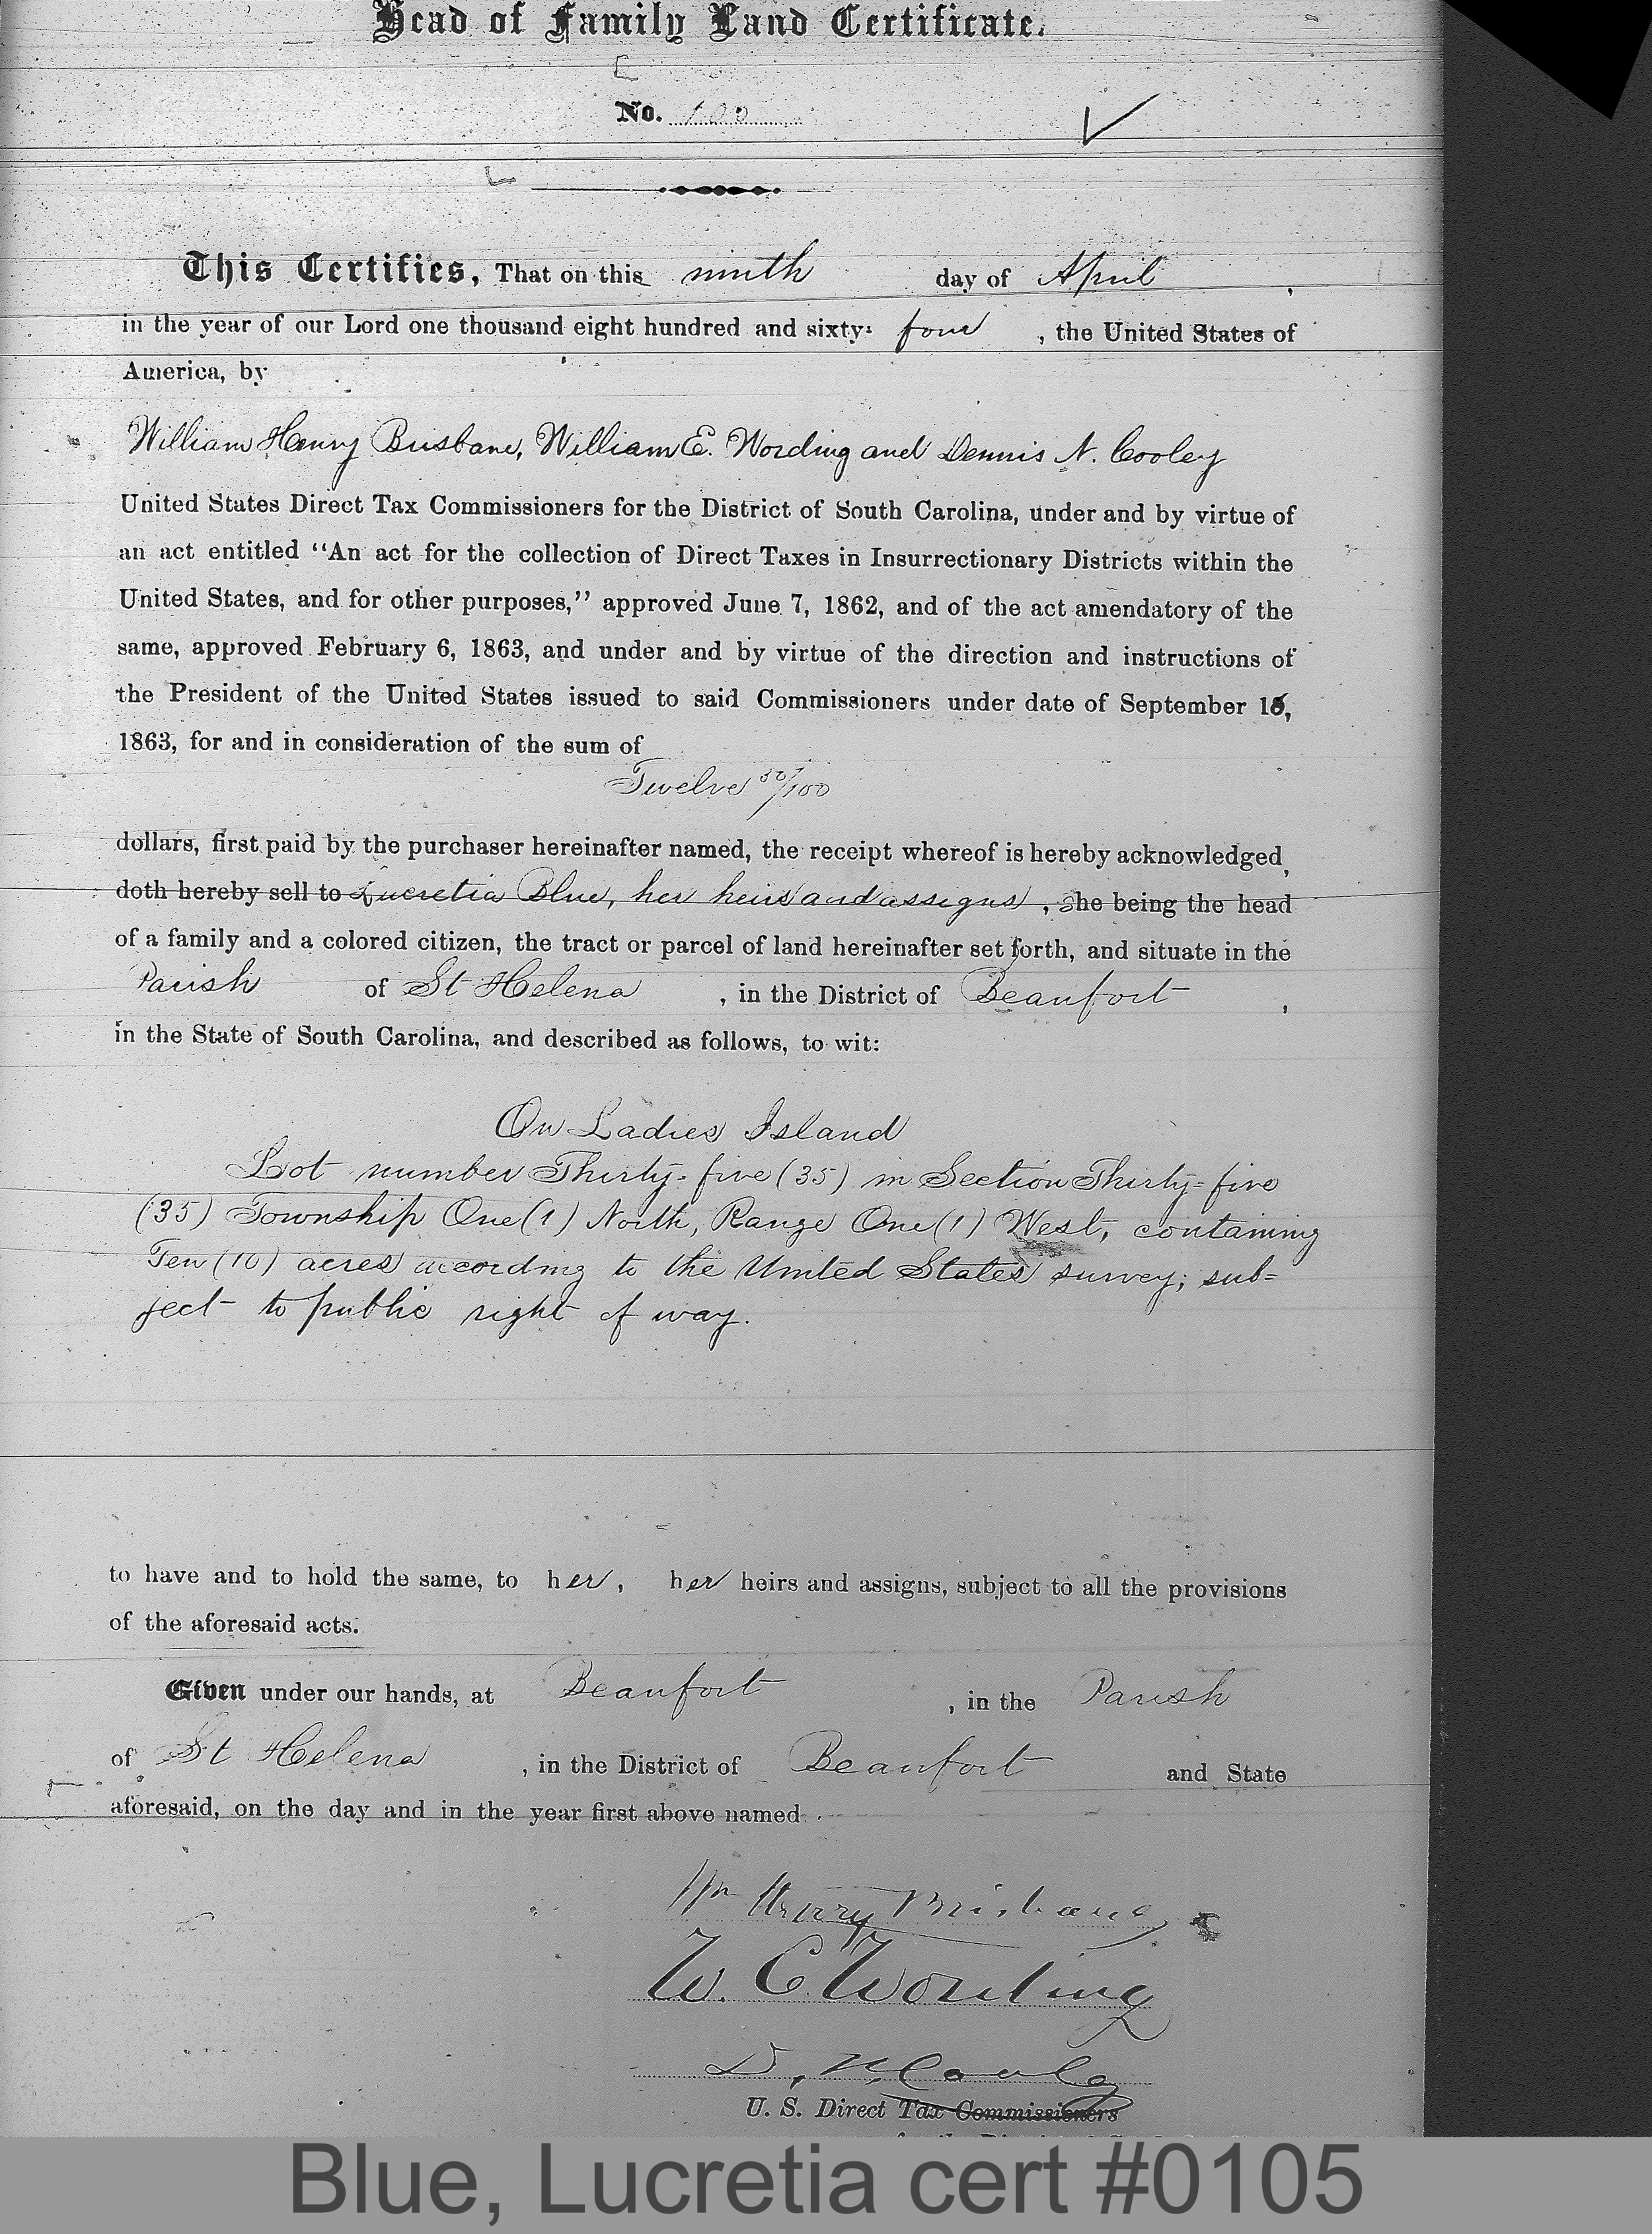 Head of Family Land Certificate.
No.
This Certifies, That on this ninth day of April,
in the year of our Lord one thousand eight hundred and sixty-four, the United States of
America, by
William Henry Brisbane, William E. Wording and Dennis N. Cooley
United States Direct Tax Commissioners for the District of South Carolina, under and by virtue of
an act entitled "An act for the collection of Direct Taxes in Insurrectionary Districts within the
United States, and for other purposes," approved June 7, 1862, and of the act amendatory of the
same, approved February 6, 1863, and under and by virtue of the direction and instructions of
the President of the United States issued to said Commissioners under date of September 16,
1863, for and in consideration of the sum of
Twelve 50/100
dollars, first paid by the purchaser hereinafter named, the receipt whereof is hereby acknowledged,
doth hereby sell to Lucretia Blue, her heirs and assigns, She being the head
of a family and a colored citizen, the tract or parcel of land hereinafter set forth, and situate in the
Parish of St Helena, in the District of Beaufort,
in the State of South Carolina, and described as follows, to wit:
On Ladies Island
Lot number Thirty-five (35) in Section Thirty-five
(35) Township One (1) North, Range One (1) West, containing
Ten (10) acres according to the United States survey; sub-
ject to public right of way.
to have and to hold the same, to her, her heirs and assigns, subject to all the provisions
of the aforesaid acts.
Given under our hands, at Beaufort, in the Parish
of St Helena, in the District of Beaufort and State
aforesaid, on the day and in the year first above named.
Wm Henry Brisbane
W. E. Wording
D. N. Cooley
U. S. Direct Tax Commissioners
Blue, Lucretia cert #0105